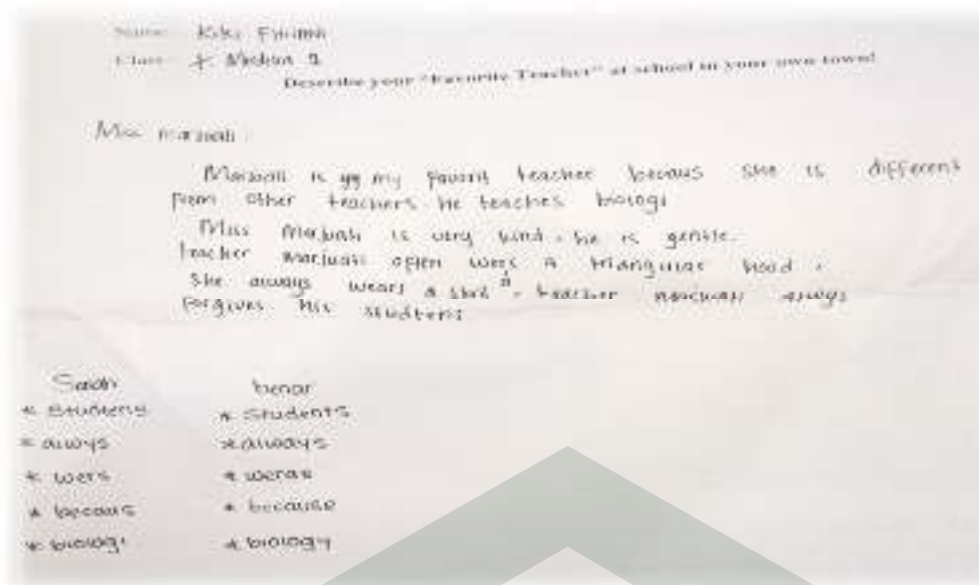 Name : Kiki
Class :
Describe your "Favorite Teacher" at school in your own town!
Miss marwati
Marwati is my favorit teacher becaus she is different
from other teachers he teaches biologi
Miss Marwati is very kind. he is gentle.
teacher marwati often wers a triangular
she always wears a teacher marwati always
forgives his
Salah benar
* * students
* alwys * always
* wers * weras
* becaus * because
* biologi * biology